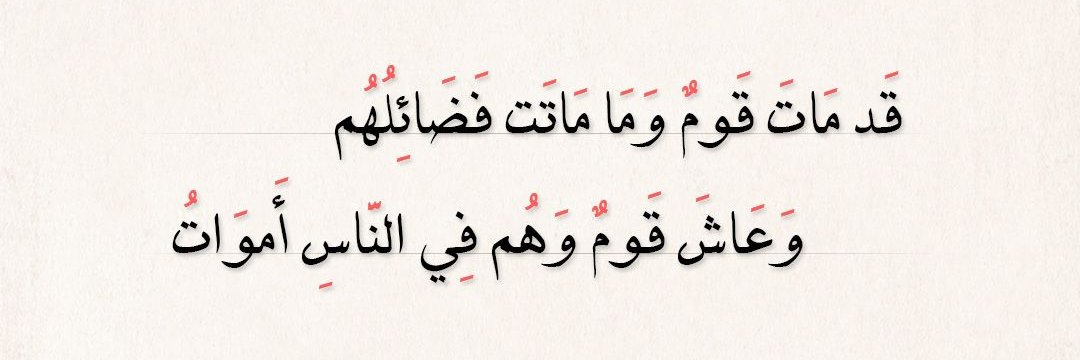 قَد مَاتَ قَومٌ وَمَا مَاتَت فَضَائِلُهُم
وَعَاشَ قَومٌ وَهُم فِي النَّاسِ أَموَاتُ